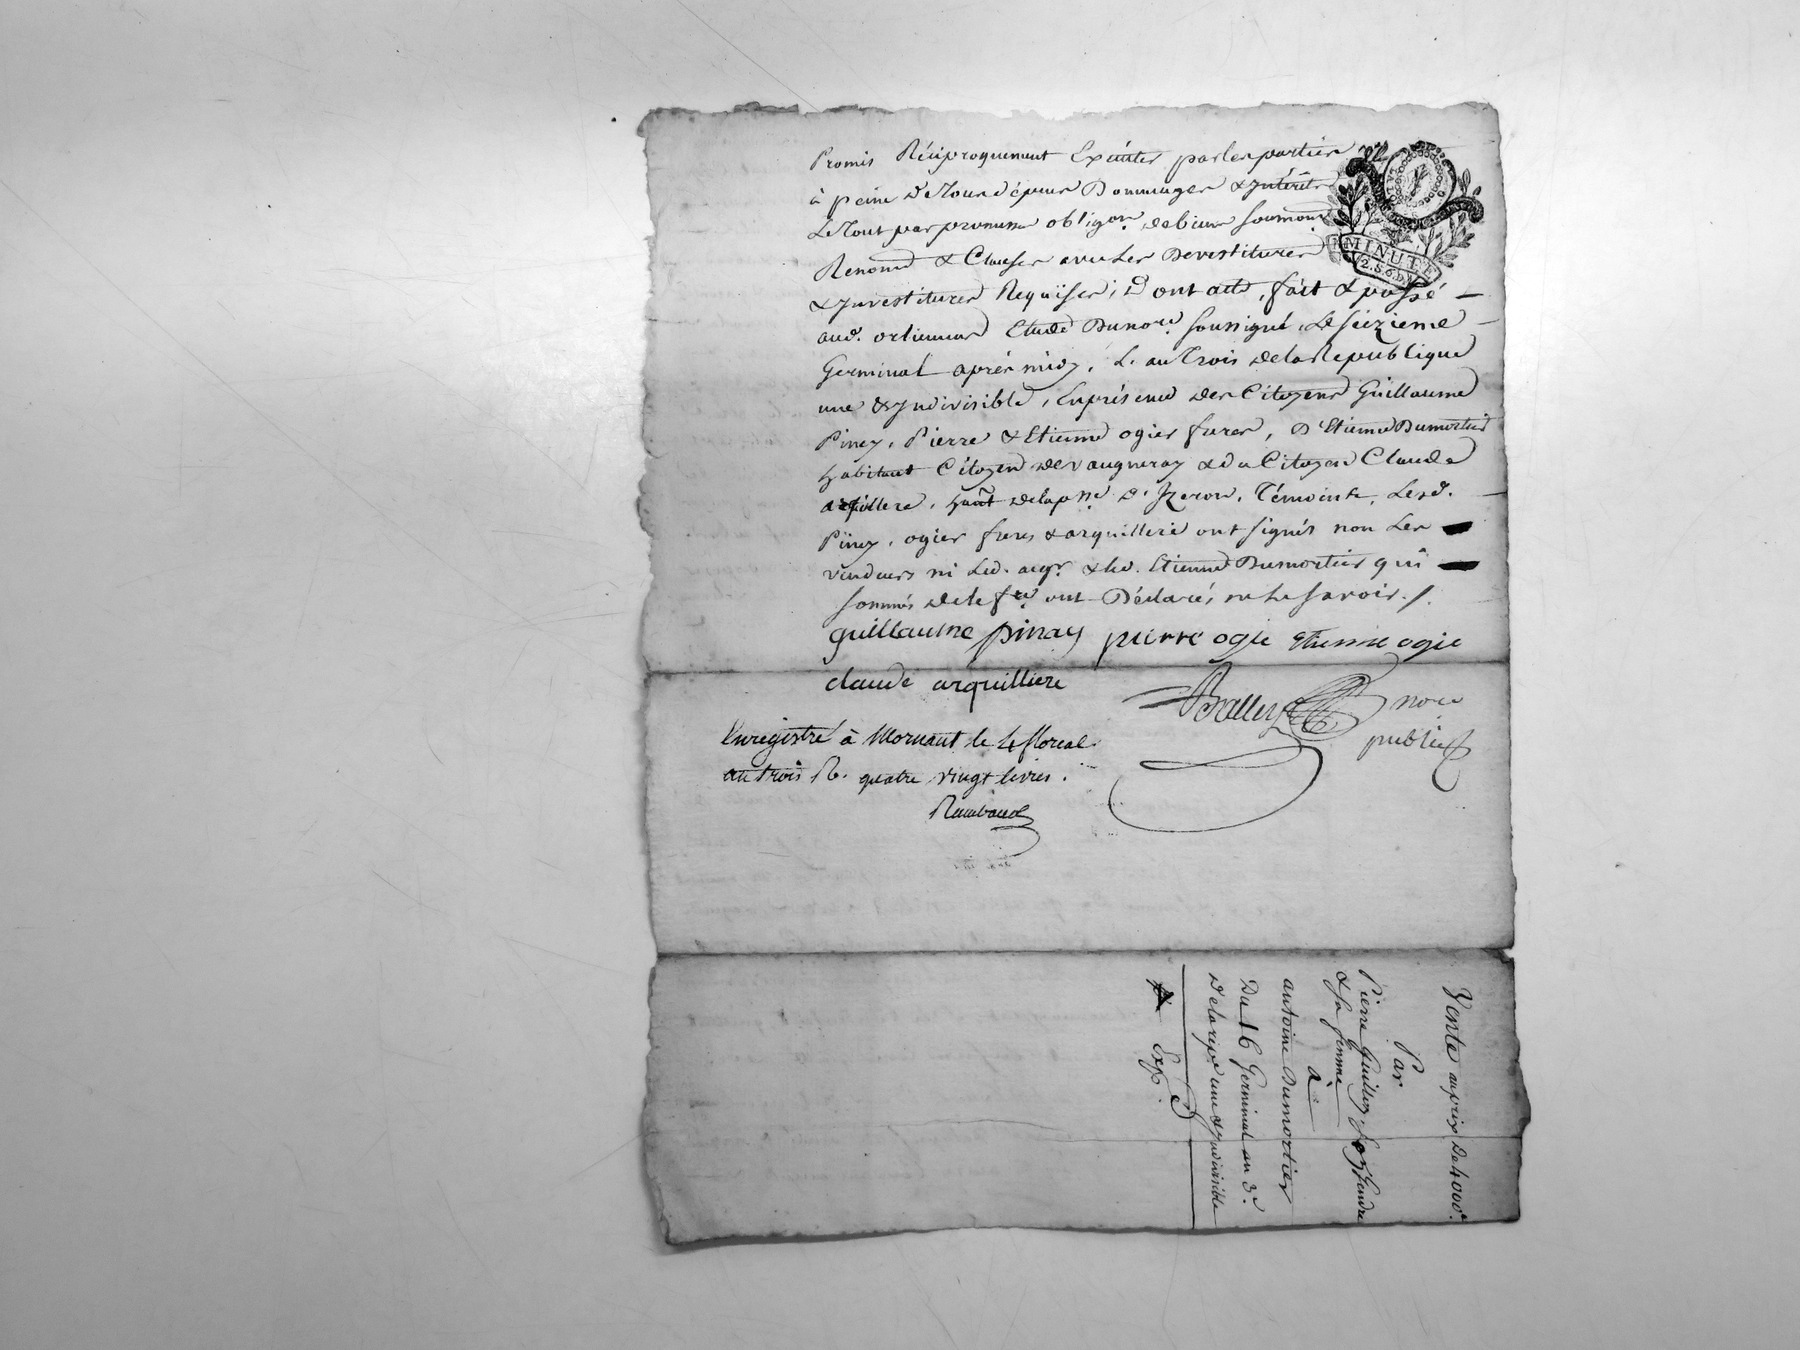 Promis Réciproquement Exécuter par les parties
à peine de Tous dépens Dommages & Intérêts
Le Tout par promesse obligon. de biens soumons.
Renond & Clauses avec Les Devestitures
& Investitures Requises; Dont acte, fait & passé
aud. ordiennas Etude Du nore. soussigné, Le seizieme
Germinal aprés midy, L. an Trois de la Republique
une & Indivisible, En présence des Citoyens Guillaume
Piney, Pierre & Etienne ogier freres, D'Etienne Dumortier
habitant Citoyen de vaugneray & du Citoyen Claude
arquillere, hant de la psse. D'Izeron, Témoints, Lesd.
Piney, ogier freres & arquilliere ont signés non Les
vendeurs ni Led. acqr. & led. Etienne Dumortier qui
sommés de le fre. ont Déclarés ne Le savoir./.
guillaume pinay pierre ogie Etienne ogie
claude arquilliere
Balley nore
public
Enregistré à Mornant le 4 floreal
an trois R. quatre vingt livres.
Raimbaud
MINUTE
2.S.6.D.
Vente au prix De 4000#
Par
Pierre Guilloz
& sa femme
à
antoine Dumortier
Du 16 Germinal an 3e
De la repe. une & Indivisible
Exp.